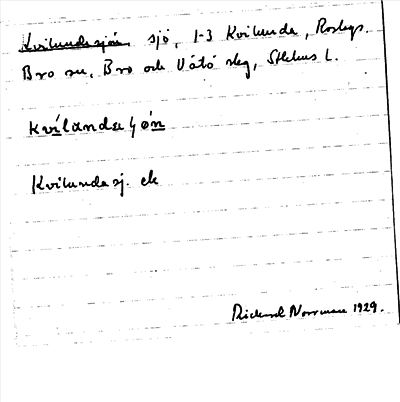 Kvilundasjön, sjö, 1-3 Kvilunda, Roslags.
Bro sn, Bro och Vätö slg, Sthlms l.
Kvilundasj. ek
Rickard Norrman 1929.